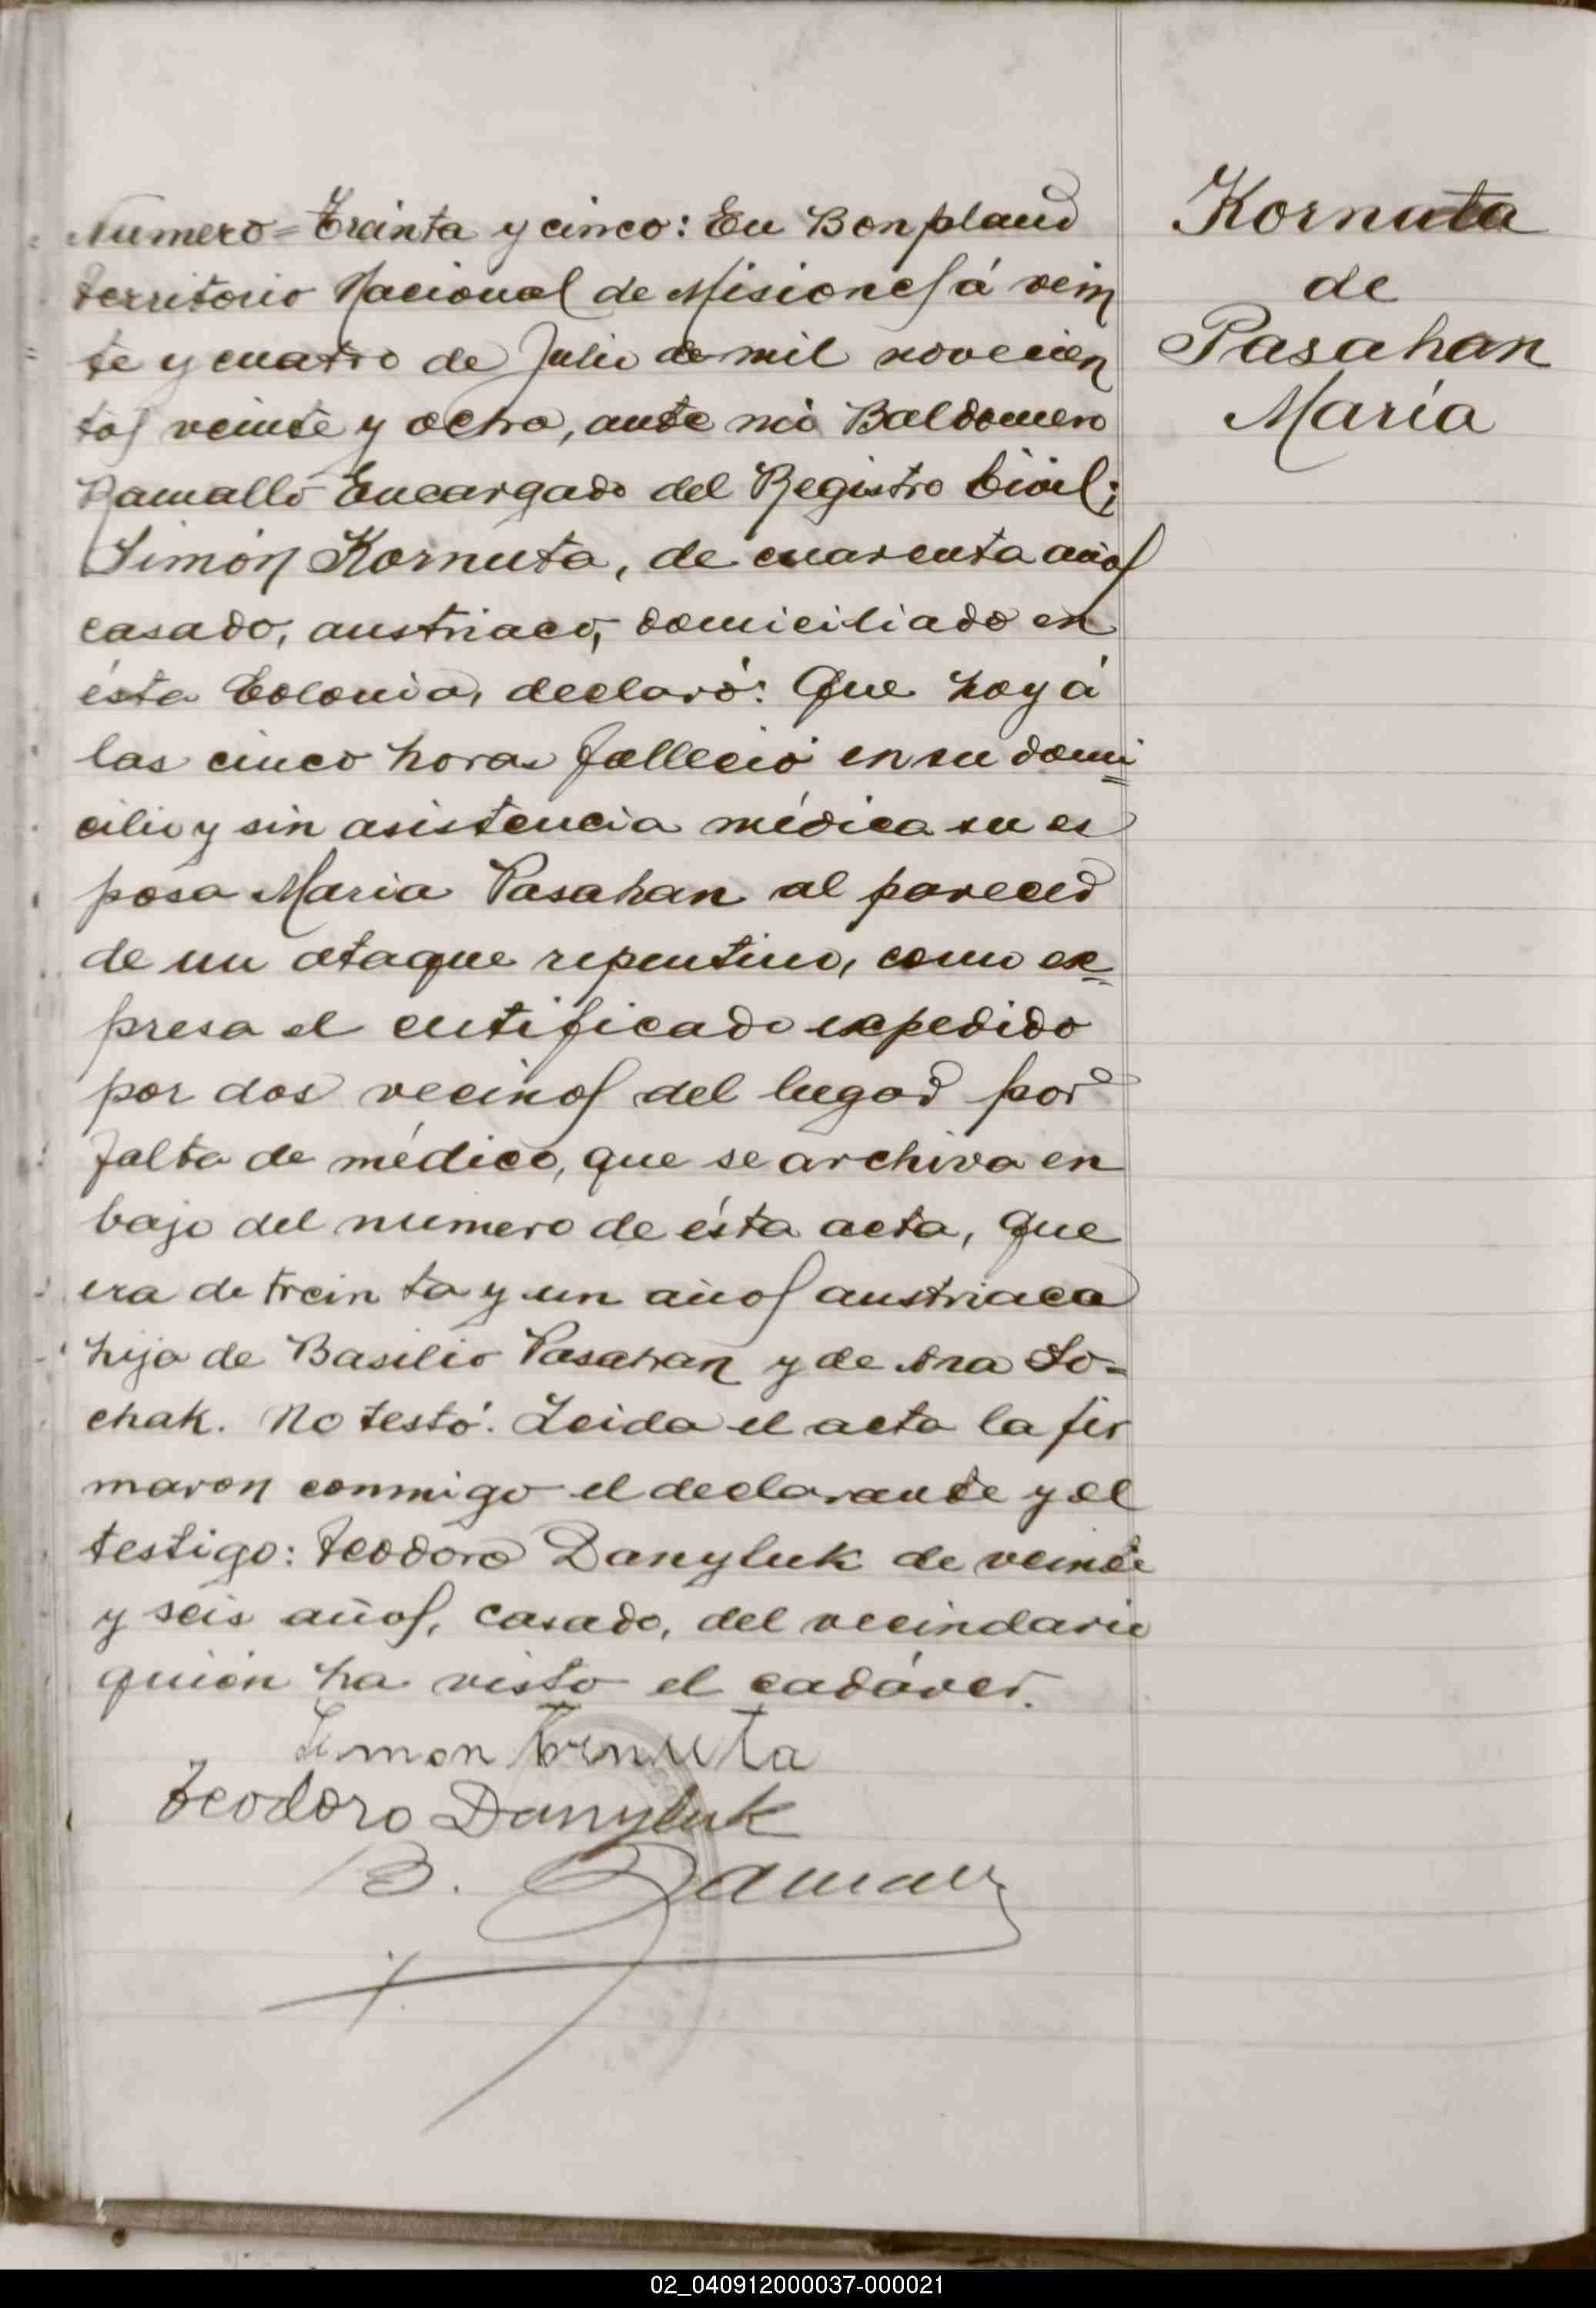 Numero = Treinta y cinco: En Bonpland
territorio Nacional de Misiones á vein
te y cuatro de Julio de mil novecien
tos veinte y ocho, ante mi Baldomero
Ramallo Encargado del Registro Civil;
Simón Kornuta, de cuarenta años
casado, austriaco, domiciliado en
ésta Colonia, declaró: Que hoy á
las cinco horas falleció en su domi=
cilio y sin asistencia médica su es
posa Maria Pasahan al parecer
de un ataque repentino, como ex=
presa el certificado expedido
por dos vecinos del lugar por
falta de médico, que se archiva en
bajo del numero de ésta acta, Que
era de trein ta y un años austriaca
hija de Basilio Pasahan y de Ana So=
chak. No testó. Leida el acta la fir
maron conmigo el declarante y el
testigo: Teodoro Danyluk de veinte
y seis años, casado, del vecindario
quién ha visto el cadáver.
Simon Kornuta
Teodoro Danyluk
B. Ramallo
Kornuta
de
Pasahan
María
02_040912000037-000021